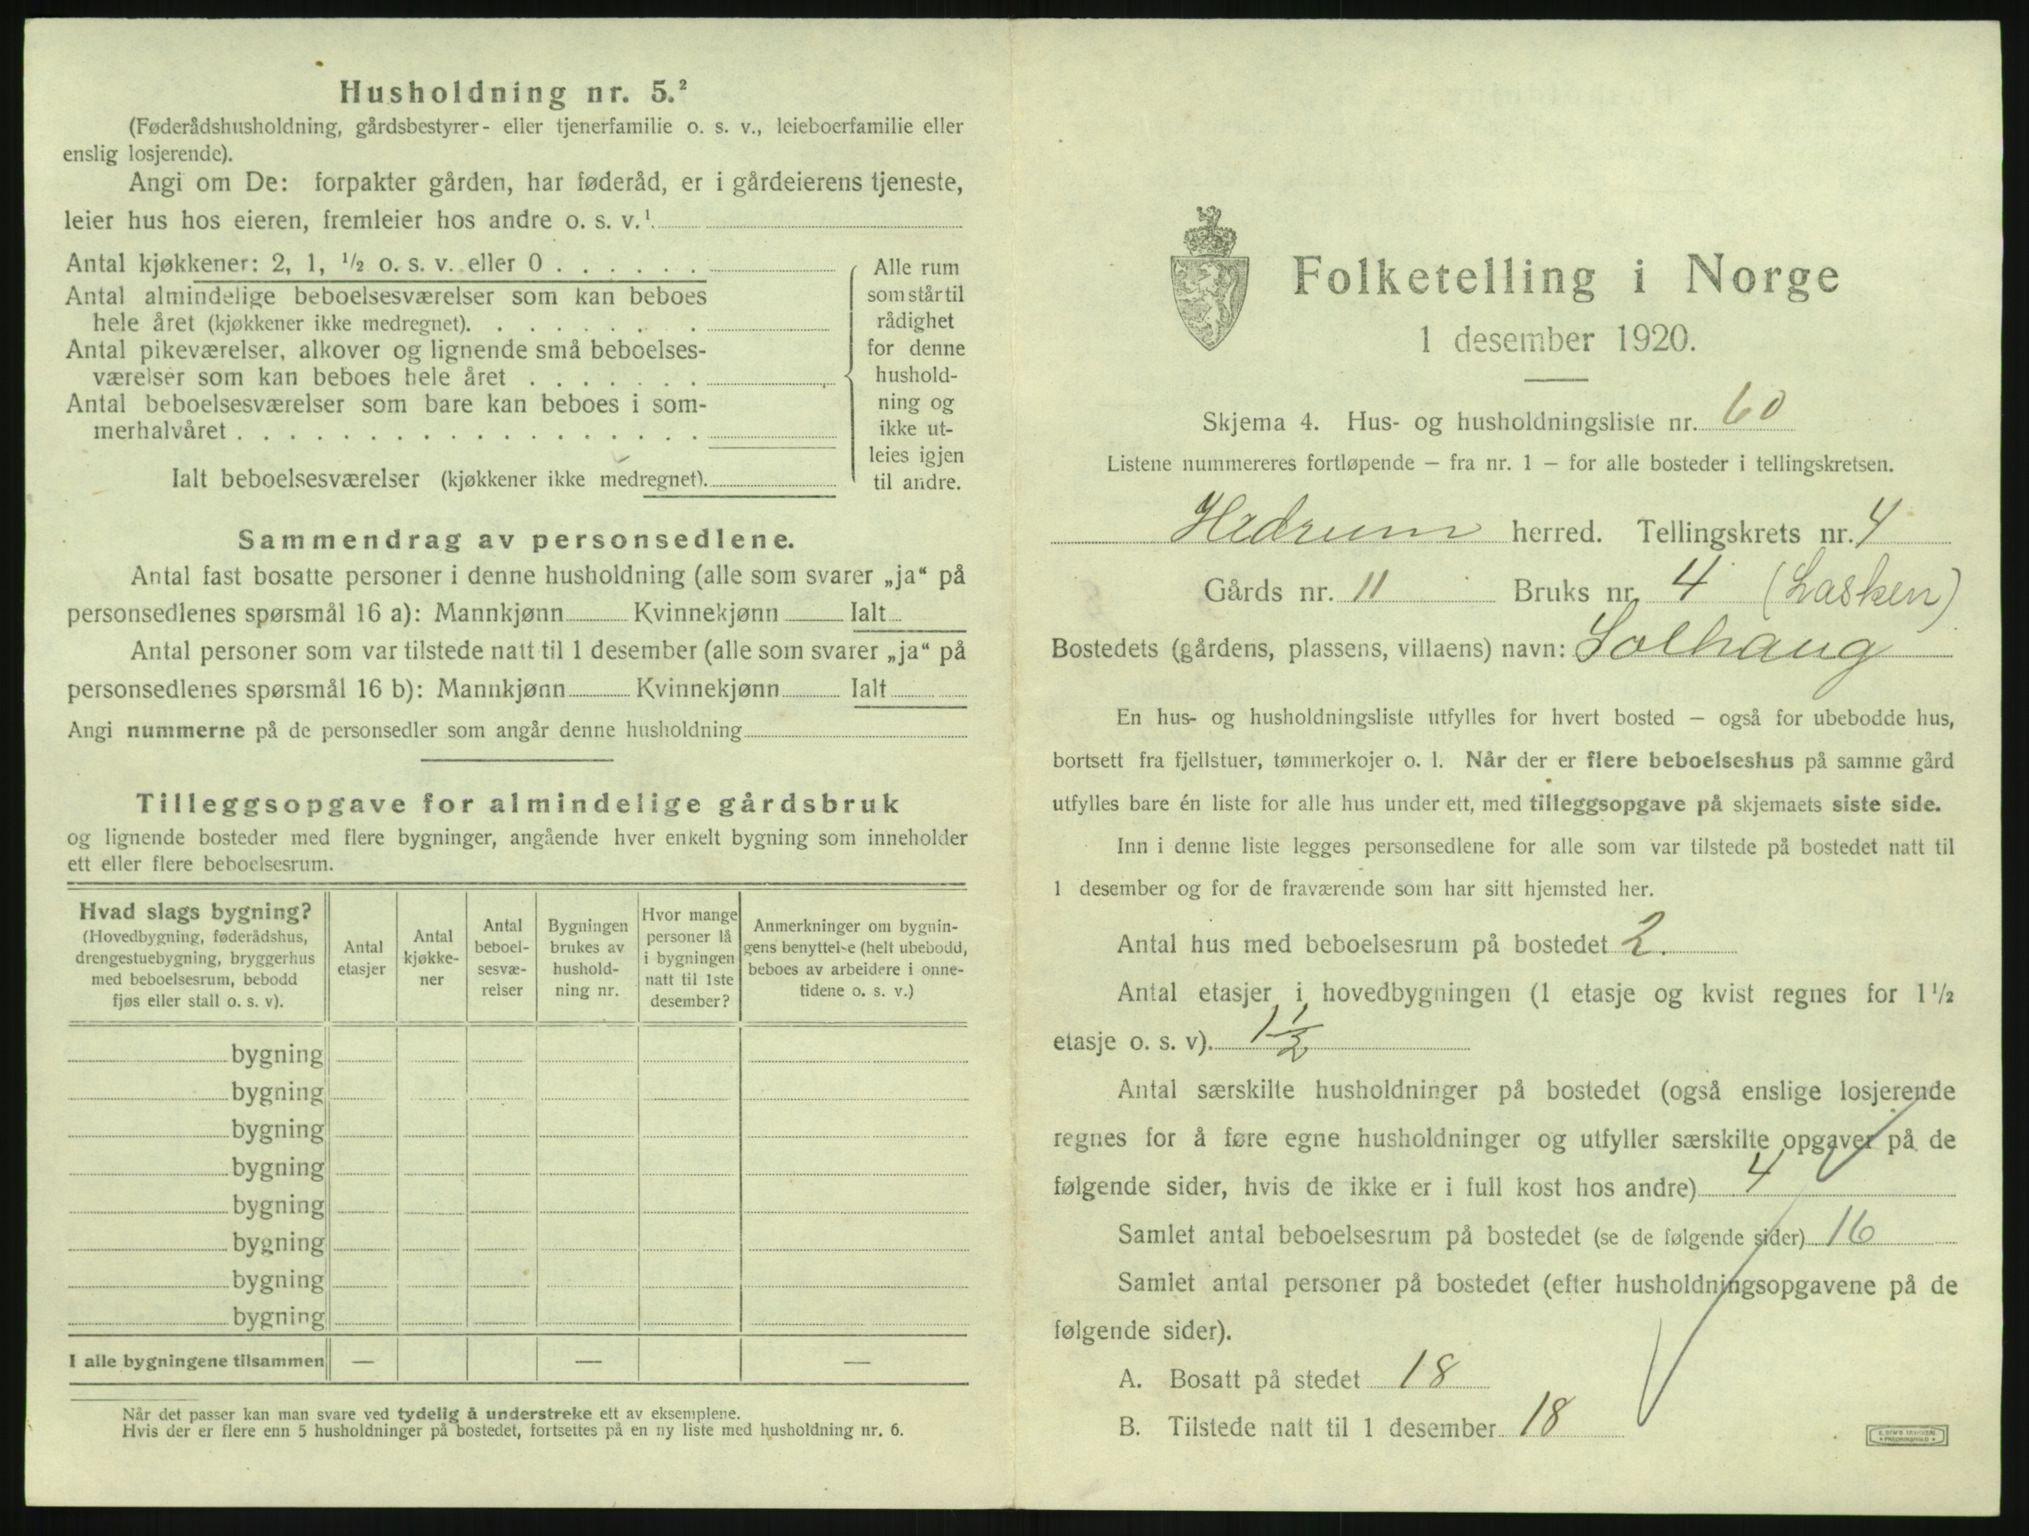 Husholdning nr. 5.²
(Føderådshusholdning, gårdsbestyrer- eller tjenerfamilie o. s. v., leieboerfamilie eller
enslig losjerende).
Angi om De: forpakter gården, har føderåd, er i gårdeierens tjeneste,
leier hus hos eieren, fremleier hos andre o. s. v.¹
Antal kjøkkener: 2, 1, ½ o. s. v. eller 0 . . . . . .
Antal almindelige beboelsesværelser som kan beboes
hele året (kjøkkener ikke medregnet). . . . . . . . .
Antal pikeværelser, alkover og lignende små beboelses-
værelser som kan beboes hele året . . . . . . .
Antal beboelsesværelser som bare kan beboes i som-
merhalvåret . . . . . . . . . . . . . . . . . .
Ialt beboelsesværelser (kjøkkener ikke medregnet).
Alle rum
som står til
rådighet
for denne
hushold-
ning og
ikke ut-
leies igjen
til andre.
Sammendrag av personsedlene.
Antal fast bosatte personer i denne husholdning (alle som svarer „ja“ på
personsedlenes spørsmål 16 a): Mannkjønn Kvinnekjønn Ialt
Antal personer som var tilstede natt til 1 desember (alle som svarer „ja“ på
personsedlenes spørsmål 16 b): Mannkjønn Kvinnekjønn Ialt
Angi nummerne på de personsedler som angår denne husholdning
Tilleggsopgave for almindelige gårdsbruk
og lignende bosteder med flere bygninger, angående hver enkelt bygning som inneholder
ett eller flere beboelsesrum.
Hvad slags bygning?
(Hovedbygning, føderådshus,
drengestuebygning, bryggerhus
med beboelsesrum, bebodd
fjøs eller stall o. s. v).
Antal
etasjer
Antal
kjøkke-
ner
Antal
beboel-
sesvæ-
relser
Bygningen
brukes av
hushold-
ning nr.
Hvor mange
personer lå
i bygningen
natt til 1ste
desember?
Anmerkninger om bygnin-
gens benyttelse (helt ubebodd,
beboes av arbeidere i onne-
tidene o. s. v.)
bygning
bygning
bygning
bygning
bygning
bygning
bygning
bygning
I alle bygningene tilsammen — — —
Når det passer kan man svare ved tydelig å understreke ett av eksemplene.
Hvis der er flere enn 5 husholdninger på bostedet, fortsettes på en ny liste med husholdning nr. 6.
Folketelling i Norge
1 desember 1920.
Skjema 4. Hus- og husholdningsliste nr. 60
Listene nummereres fortløpende – fra nr. 1 – for alle bosteder i tellingskretsen.
Hedrum herred. Tellingskrets nr. 4
Gårds nr. 11 Bruks nr. 4 (Lasken)
Bostedets (gårdens, plassens, villaens) navn: Solhaug
En hus- og husholdningsliste utfylles for hvert bosted – også for ubebodde hus,
bortsett fra fjellstuer, tømmerkojer o. l. Når der er flere beboelseshus på samme gård
utfylles bare én liste for alle hus under ett, med tilleggsopgave på skjemaets siste side.
Inn i denne liste legges personsedlene for alle som var tilstede på bostedet natt til
1 desember og for de fraværende som har sitt hjemsted her.
Antal hus med beboelsesrum på bostedet 2.
Antal etasjer i hovedbygningen (1 etasje og kvist regnes for 1½
etasje o. s. v). 1½
Antal særskilte husholdninger på bostedet (også enslige losjerende
regnes for å føre egne husholdninger og utfyller særskilte opgaver på de
følgende sider, hvis de ikke er i full kost hos andre) 4
Samlet antal beboelsesrum på bostedet (se de følgende sider) 16
Samlet antal personer på bostedet (efter husholdningsopgavene på de
følgende sider).
A. Bosatt på stedet 18
B. Tilstede natt til 1 desember 18